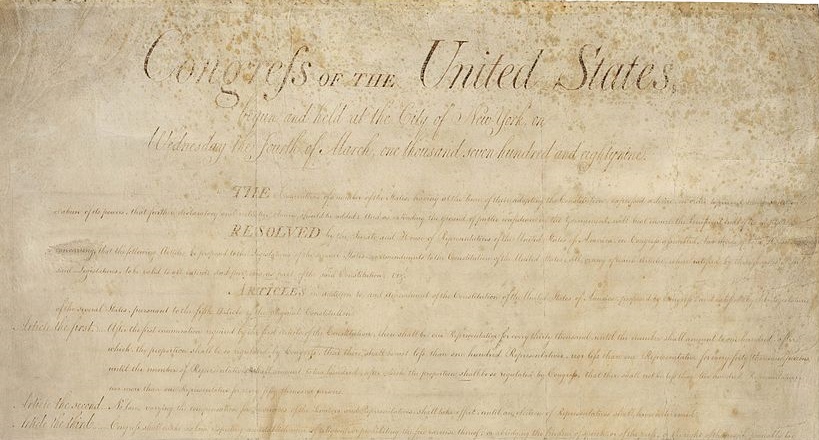 Congreſs OF THE United States,
begun and held at the City of New York, on
Wednesday the fourth of March, one thousand seven hundred and eighty nine.
THE Conventions of a number of the States, having at the time of their adopting the Constitution, expressed a desire, in order to prevent
abuse of its powers, that further declaratory and restrictive clauses should be added: And as extending the ground of public confidence in the Government, will best ensure the
RESOLVED by the Senate and House of Representatives of the United States of America, in Congress assembled, two thirds of
concurring, that the following Articles be proposed to the Legislatures of the several States, as amendments to the Constitution of the United States, all, or any of which Articles, when ratified by three fourths of the
said Legislatures, to be valid to all intents and purposes, as part of the said Constitution; vizt.
ARTICLES in addition to, and amendment of the Constitution of the United States of America, proposed by Congress, and ratified by the Legislatures
of the several States, pursuant to the fifth Article of the original Constitution.
Article the first... After the first enumeration required by the first Article of the Constitution, there shall be one Representative for every thirty thousand, until the number shall amount to one hundred, after
which, the proportion shall be so regulated by Congress, that there shall be not less than one hundred Representatives, nor less than one Representative for every forty thousand persons,
until the number of Representatives shall amount to two hundred, after which the proportion shall be so regulated by Congress, that there shall not be less than two hundred Representatives,
nor more than one Representative for every fifty thousand persons.
Article the second... No law, varying the compensation for the services of the Senators and Representatives, shall take effect, until an election of Representatives shall have intervened.
Article the third... Congress shall make no law respecting an establishment of religion, or prohibiting the free exercise thereof; or abridging the freedom of speech, or of the press,